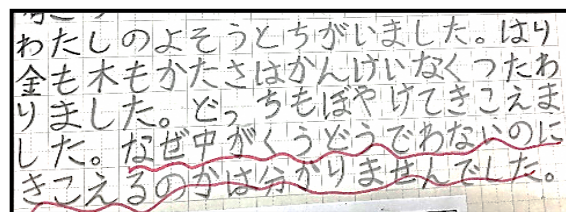 わたしのよそうとちがいました。はり
金も木もかたさはかんけいなくつたわ
りました。どっちもぼやけてきこえま
した。なぜ中がくうどうでわないのに
きこえるのかは分かりませんでした。